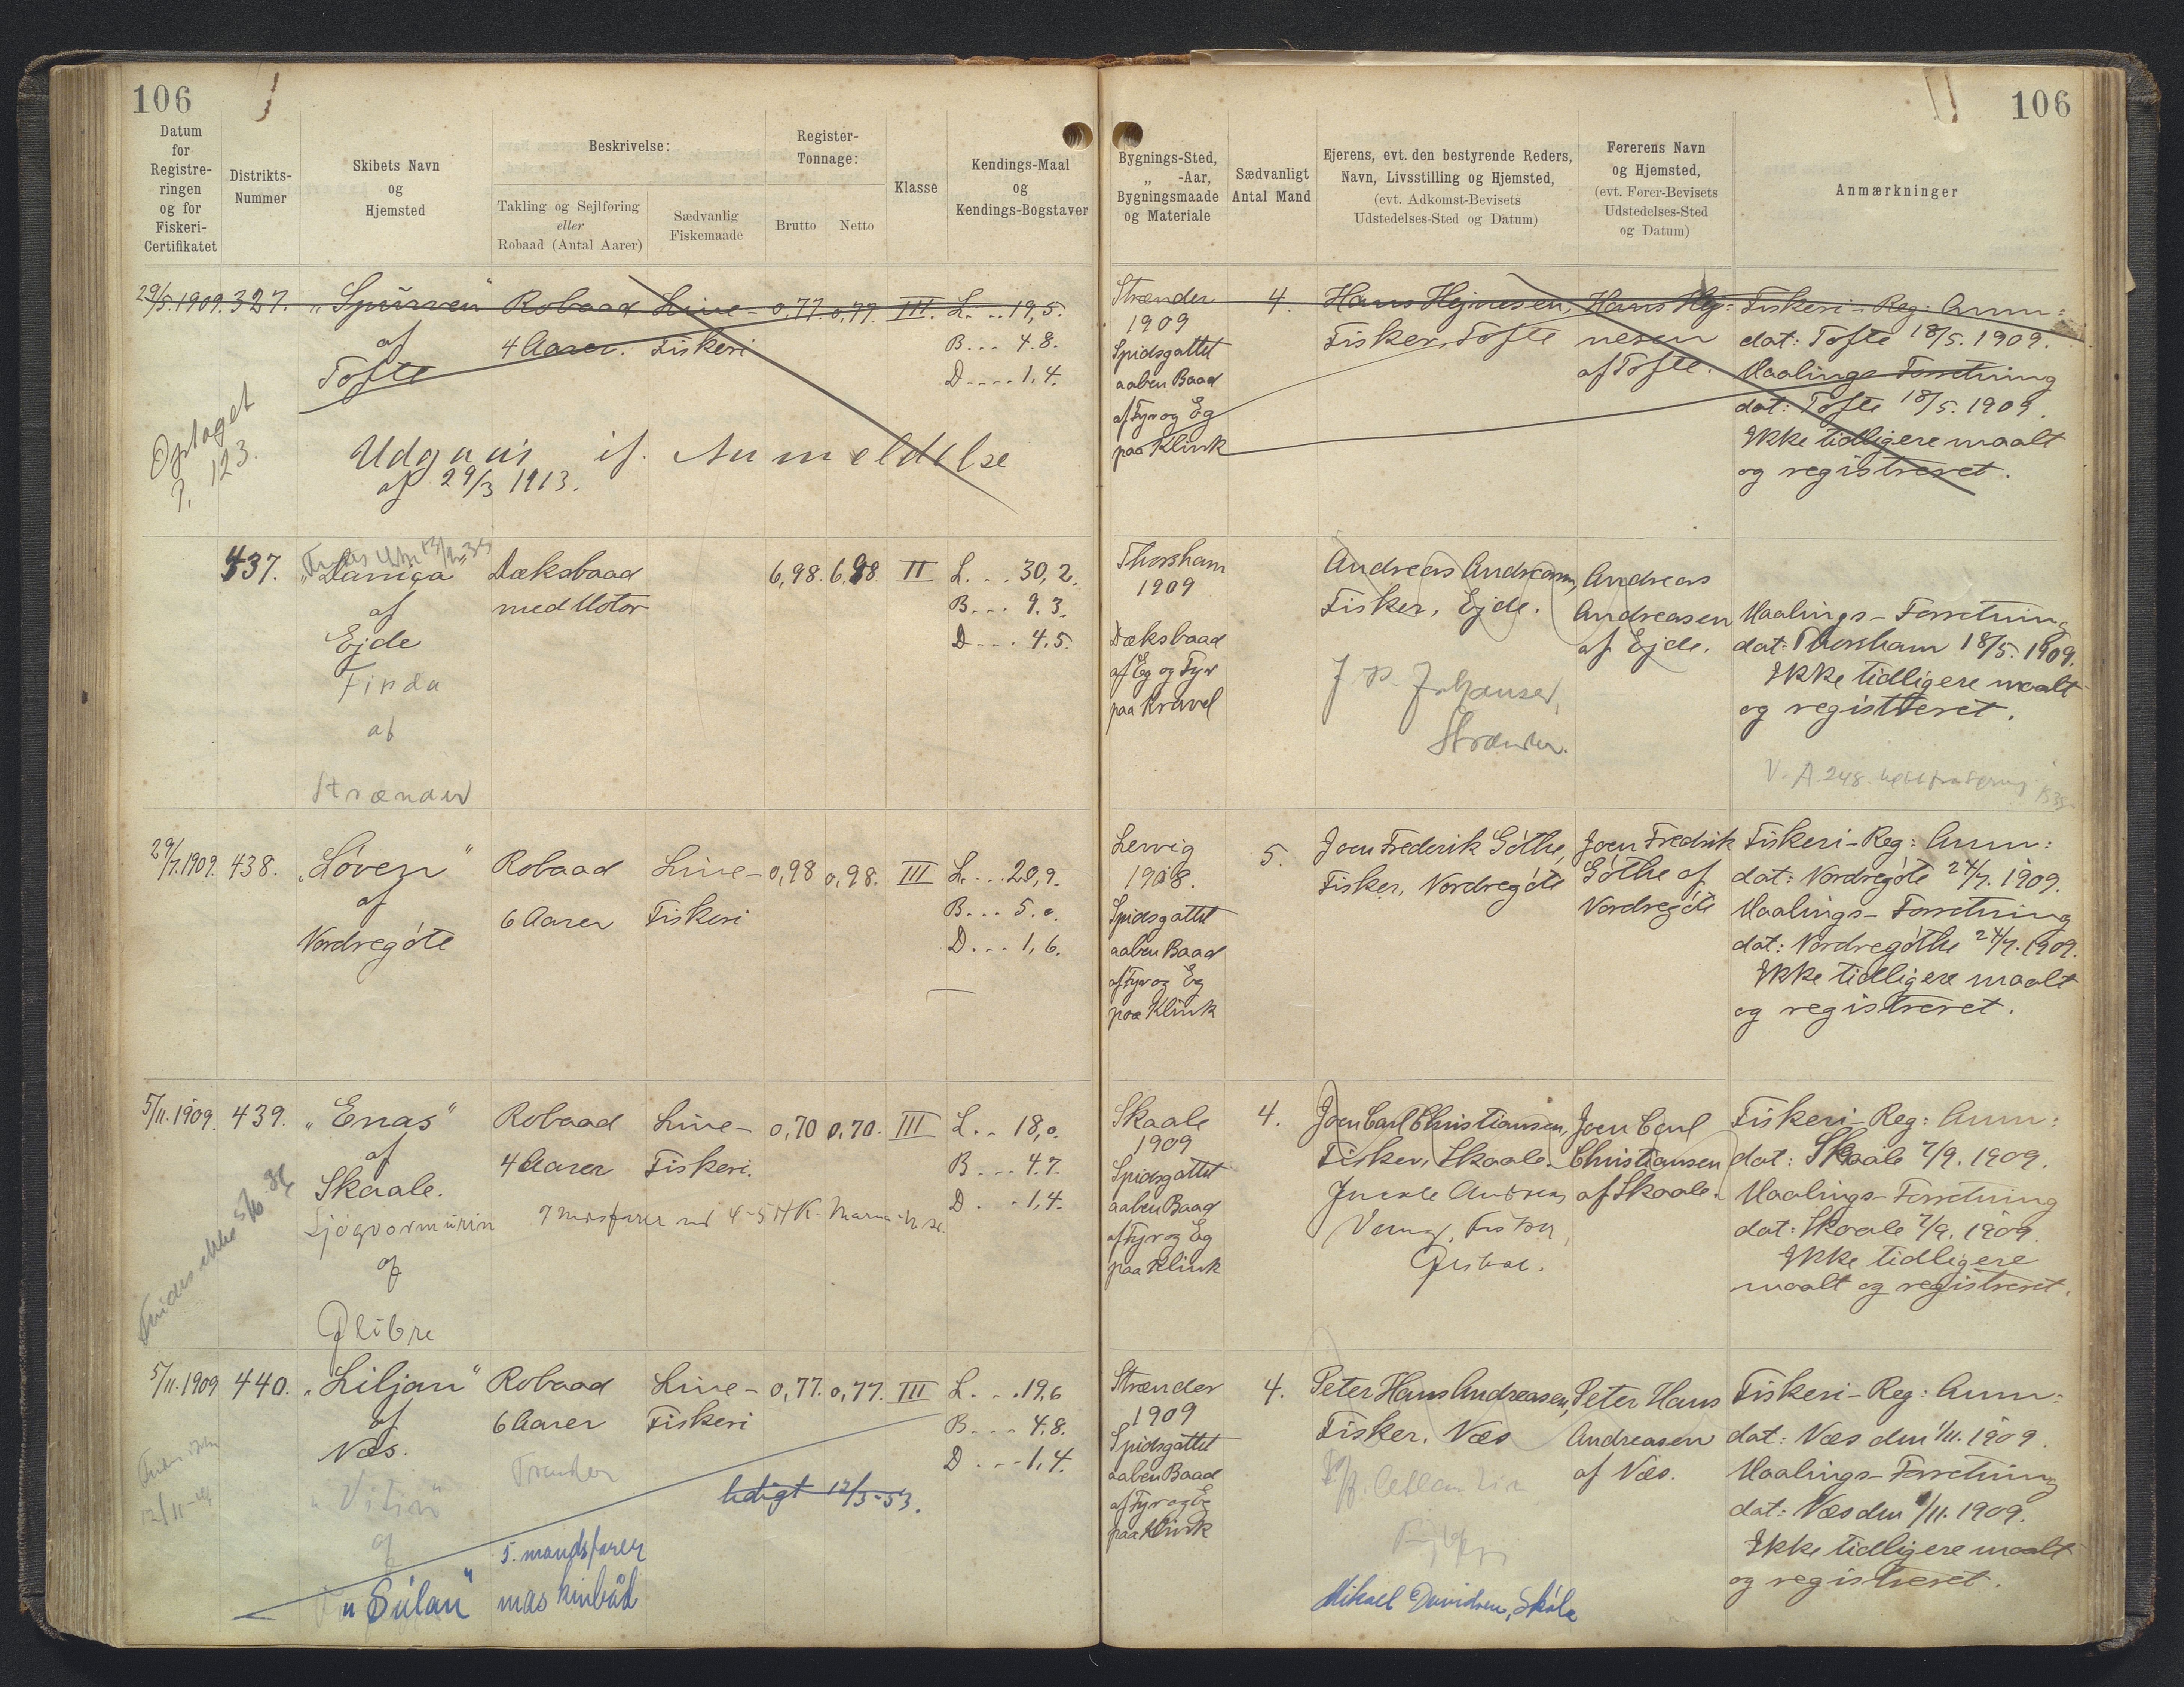 106
Datum
for
Registre-
ringen
og for
Fiskeri-
Certifikatet
Distrikts-
Nummer
Skibets Navn
og
Hjemsted
Beskrivelse:
Takling og Sejlføring
eller
Robaad (Antal Aarer)
Sædvanlig
Fiskemaade
Register-
Tonnage:
Brutto
Netto
Klasse
Kendings-Maal
og
Kendings-Bogstaver
29/5.1909. 327. "Spurven" Robaad Line- 0,77. 0,77. III. L. .. 19,5.
af 4 Aarer. Fiskeri B... 4.8.
Tofte D.... 1,4.
Optaget
P. 123.
Udgaar if. Anmeldelse
af 29/3 1913.
437. Dæksbaad 6,98. 6,98 II L. .. 30,2.
af med Motor B... 9.3.
Ejde D.... 4.5.
af
Strænder
29/7.1909. 438. "Løven" Robaad Line- 0,98 0,98. III L. .. 20,9.
af 6 Aarer Fiskeri B... 5.0.
Nordregóte D... 1,6.
5/11.1909. 439. "Enas" Robaad Line- 0,70 0,70. III L. . 18,0.
af 4 Aarer Fiskeri. B... 4.7.
Skaale. D. .. 1,4.
af
Findes ikke
5/11.1909 440. "Liljan" Robaad Line- 0,77. 0,77. III L. .. 19,6
af 6 Aarer Fiskeri B... 4.8.
Næs. D ... 1,4.
ledigt 12/3-53.
5. mandsfarer
"Súlan" maskinbåd
106
Bygnings-Sted,
„ -Aar,
Bygningsmaade
og Materiale
Sædvanligt
Antal Mand
Ejerens, evt. den bestyrende Reders,
Navn, Livsstilling og Hjemsted,
(evt. Adkomst-Bevisets
Udstedelses-Sted og Datum)
Førerens Navn
og Hjemsted,
(evt. Fører-Bevisets
Udstedelses-Sted
og Datum)
Anmærkninger
Strænder 4. Hans Hejnesen, Hans Hej- Fiskeri-Reg: Anm:
1909 Fisker, Tofte nesen dat: Tofte 18/5. 1909.
Spidsgattet af Tofte. Maalings Forretning
aaben Baad dat: Tofte 18/5. 1909.
af Fyr og Eg Ikke tidligere maalt
paa Klink og registreret.
Thorshavn Andreas Andreasen, Andreas
1909 Fisker, Ejde. Andreasen Maalings-Forretning
Dæksbaad af Ejde. dat: Thorshavn 18/5. 1909.
af Eg og Fyr Ikke tidligere maalt
paa Kravel og registreret.
J. P. Johansen,
Strænder.
Lervig 5. Joen Frederik Góthe, Joen Fredrik Fiskeri-Reg: Anm:
1908. Fisker, Nordregóte Góthe af dat: Nordregóte 24/7. 1909.
Spidsgattet Nordregóte Maalings-Forretning
aaben Baad dat: Nordregóthe 24/7. 1909.
af Fyr og Eg Ikke tidligere maalt
paa Klink og registreret.
Skaale 4. Joen Carl Christiansen, Joen Carl Fiskeri-Reg: Anm:
1909 Fisker, Skaale. Christiansen dat: Skaale 7/9. 1909.
Spidsgattet af Skaale. Maalings-Forretning
aaben Baad dat: Skaale 7/9. 1909.
af Fyr og Eg Ikke tidligere
paa Klink maalt og registreret.
Strænder 4. Peter Hans Andreasen, Peter Hans Fiskeri-Reg: Anm:
1909 Fisker. Næs Andreasen dat: Næs den 1/11. 1909.
Spidsgattet af Næs. Maalings-Forretning
aaben Baad dat: Næs den 1/11. 1909.
af Fyr og Eg Ikke tidligere maalt
paa Klink og registreret.
Mikael Davidsen, Skála